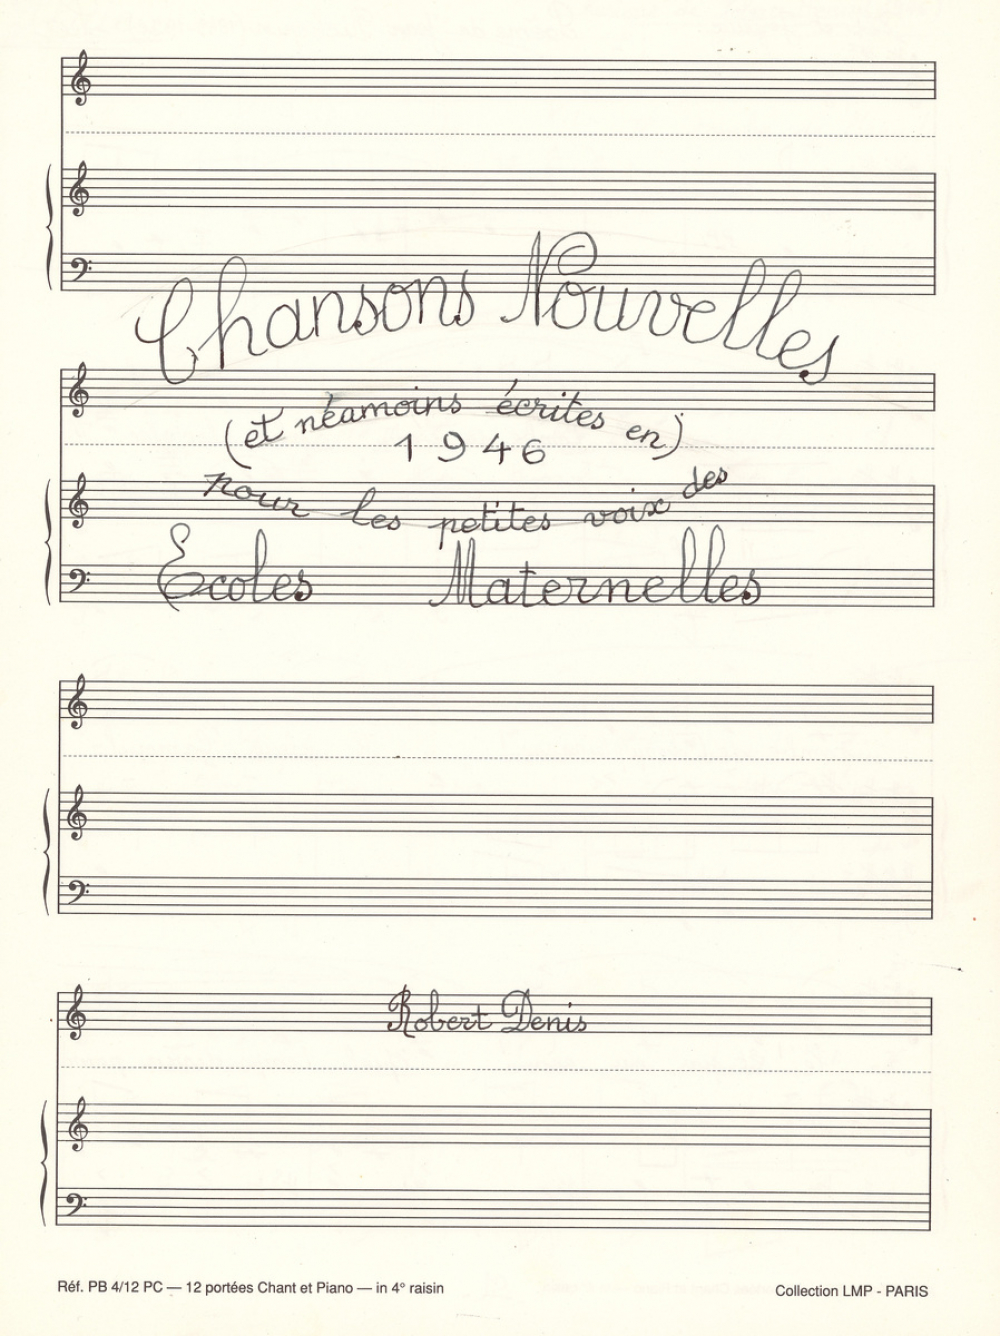 Chansons Nouvelles
(et néamoins écrites en)
1946
pour les petites voix des
Ecoles Maternelles
Robert Denis
Réf. PB 4/12 PC — 12 portées Chant et Piano — in 4° raisin
Collection LMP - PARIS